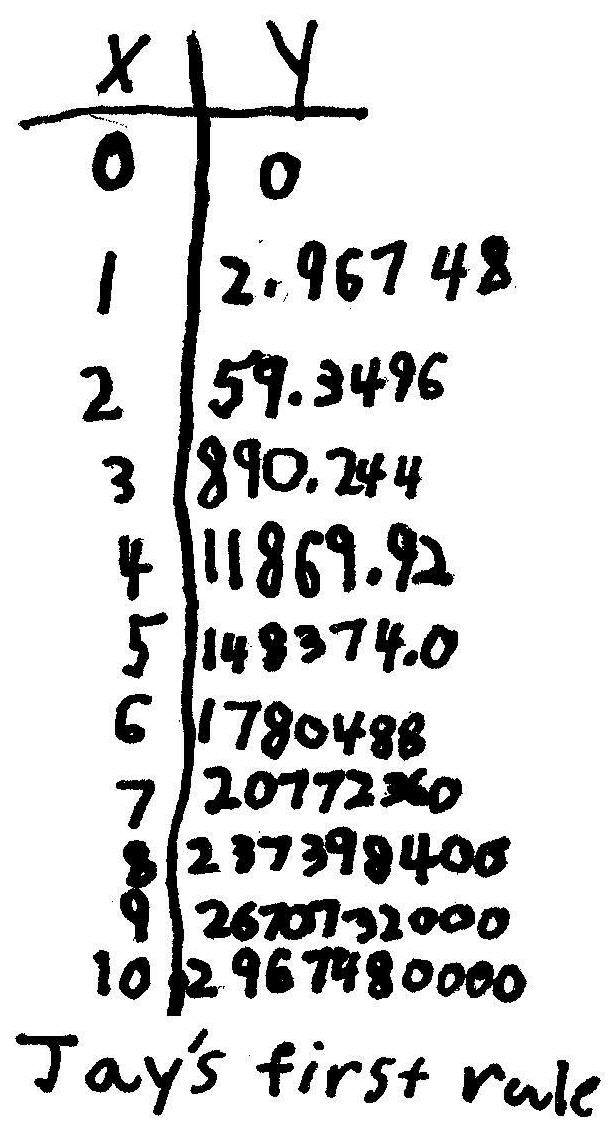 X Y
0 0
1 2.96748
2 59.3496
3 890.244
4 11869.92
5 148374.0
6 1780488
7 20772360
8 237398400
9 2670732000
10 2967480000
Jay's first rule